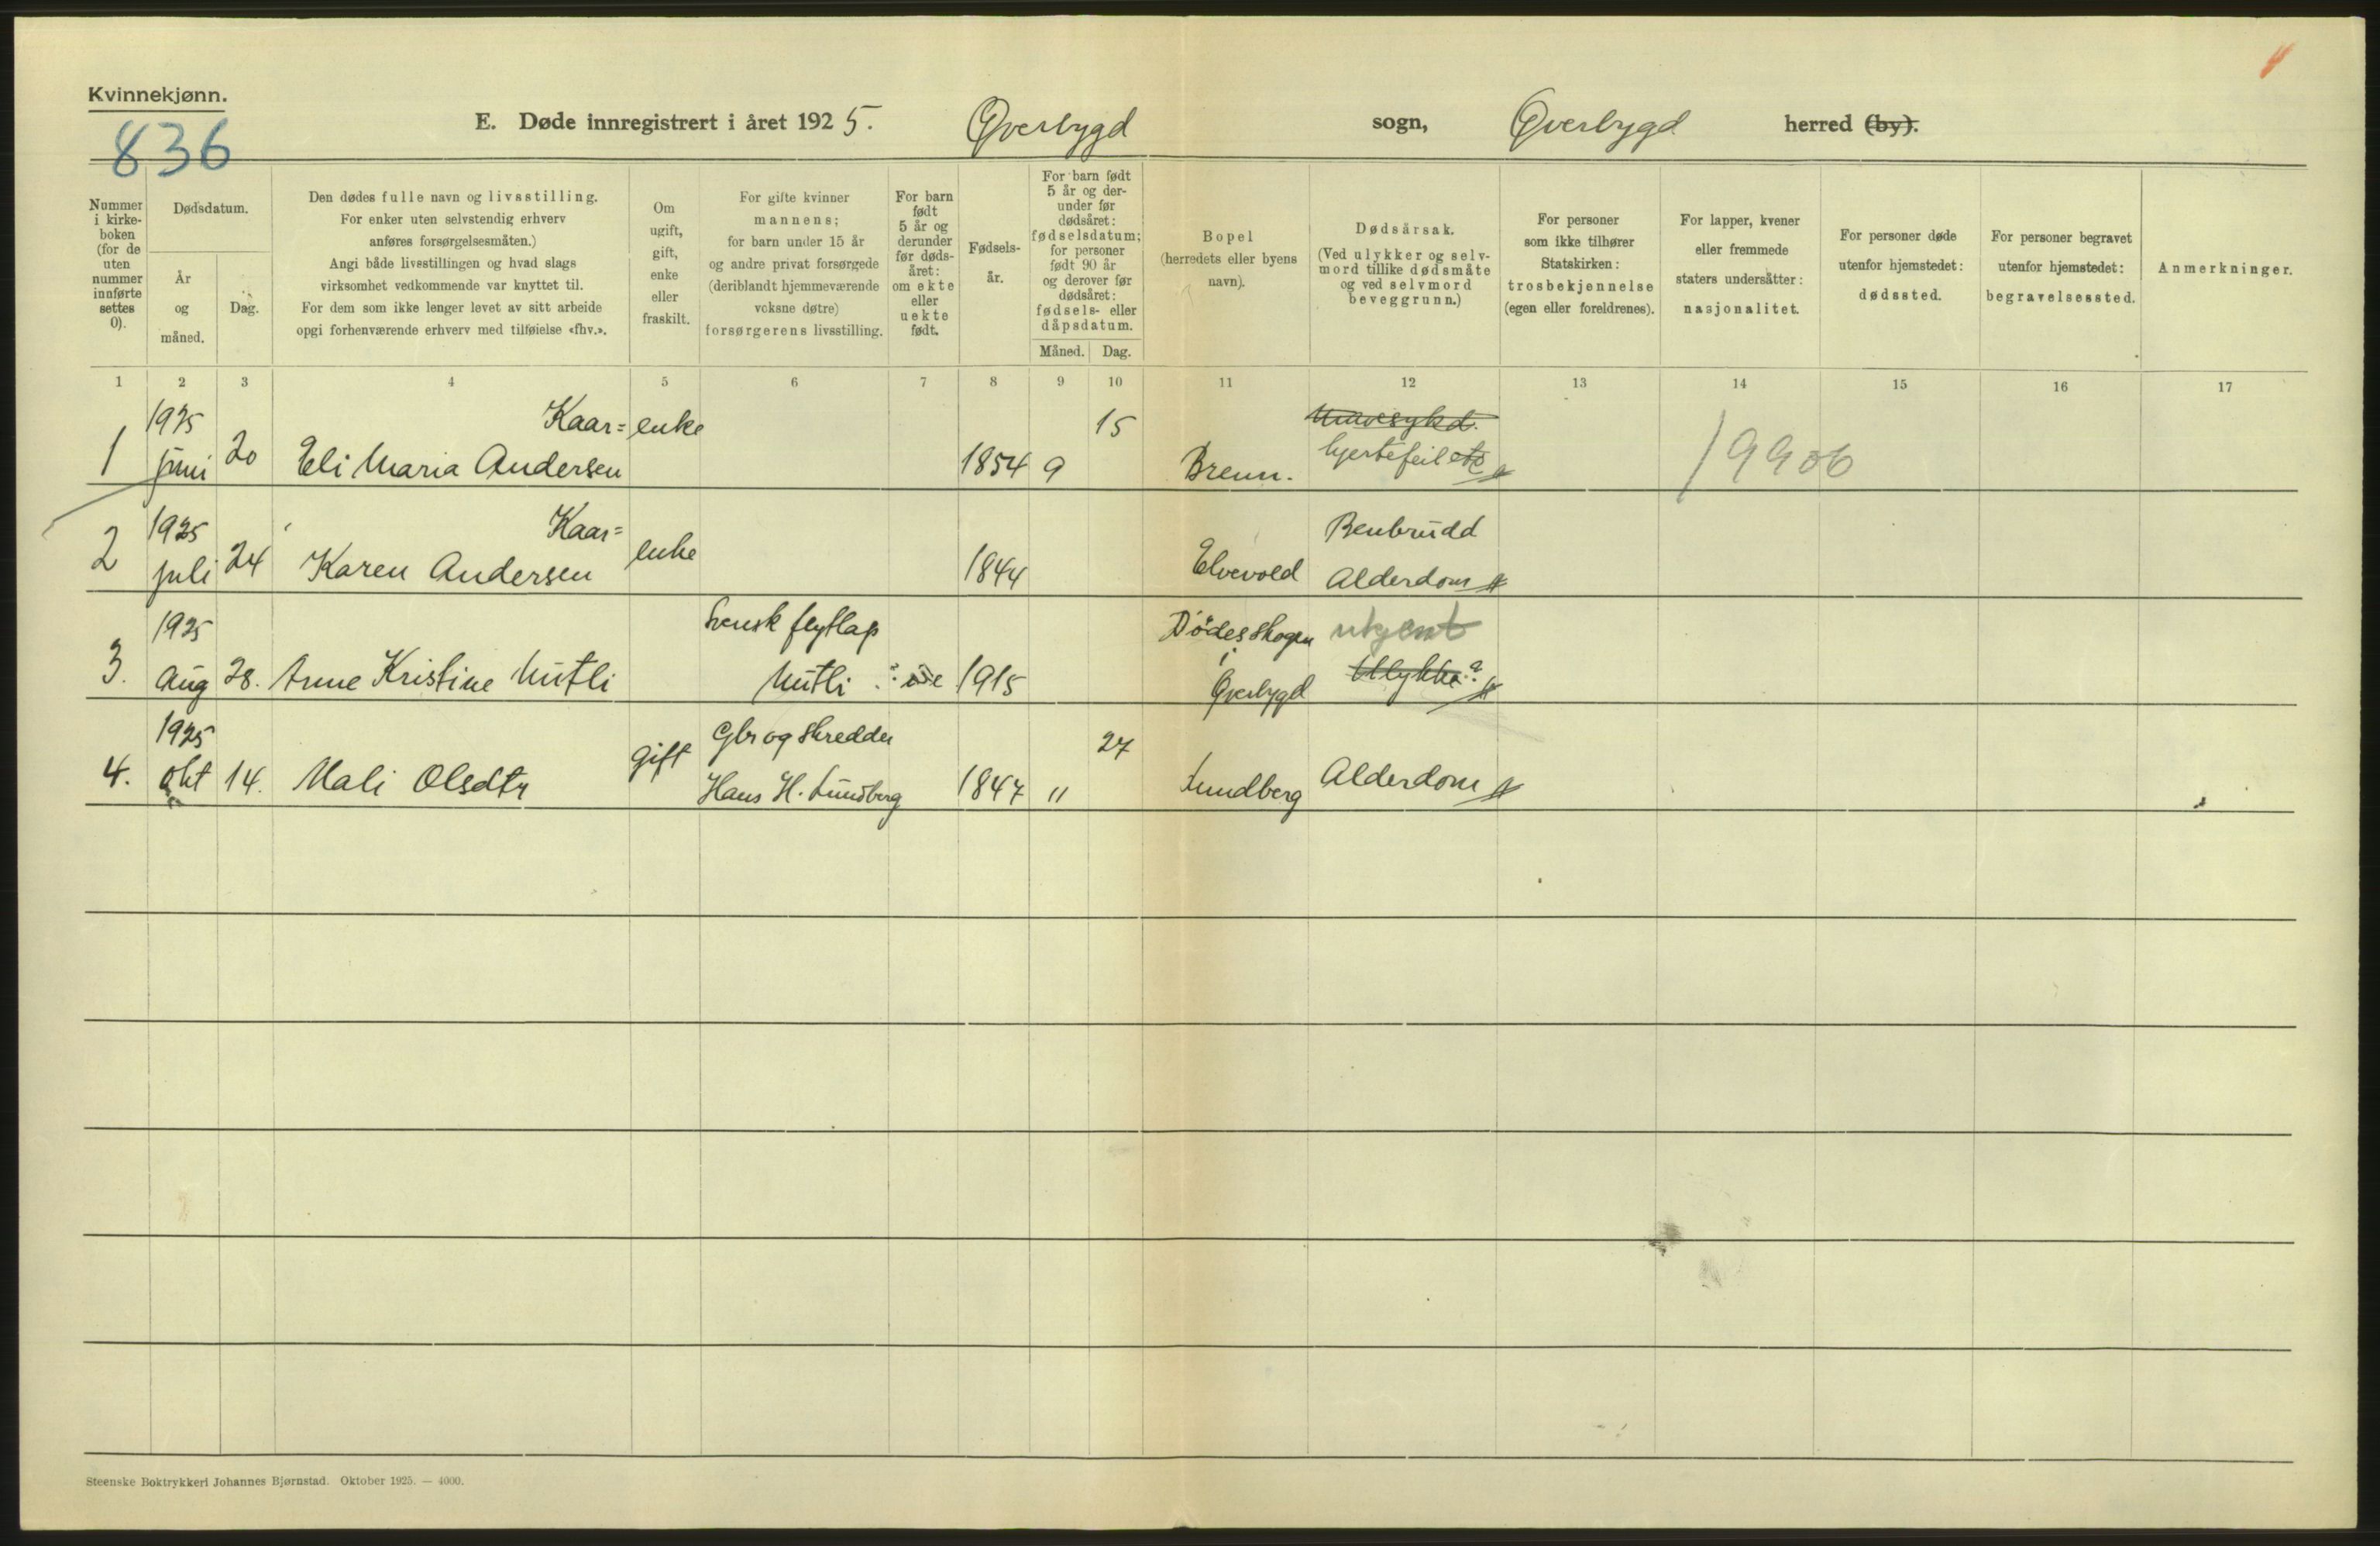 Kvinnekjønn.
836
E. Døde innregistrert i året 1925. Øverbygd sogn, Øverbygd herred (by).
Nummer
i kirke-
boken
(for de
uten
nummer
innførte
settes
0).
Dødsdatum.
År
og
måned.
Dag.
Den dødes fulle navn og livsstilling.
For enker uten selvstendig erhverv
anføres forsørgelsesmåten.)
Angi både livsstillingen og hvad slags
virksomhet vedkommende var knyttet til.
For dem som ikke lenger levet av sitt arbeide
opgi forhenværende erhverv med tilføielse «fhv.».
Om
ugift,
gift,
enke
eller
fraskilt.
For gifte kvinner
mannens;
for barn under 15 år
og andre privat forsørgede
(deriblandt hjemmeværende
voksne døtre)
forsørgerens livsstilling.
For barn
født
5 år og
derunder
før døds-
året:
om ekte
eller
uekte
født.
Fødsels-
år.
For barn født
5 år og der-
under før
dødsåret:
fødselsdatum;
for personer
født 90 år
og derover før
dødsåret:
fødsels- eller
dåpsdatum.
Måned. Dag.
Bopel
(herredets eller byens
navn).
Dødsårsak.
(Ved ulykker og selv-
mord tillike dødsmåte
og ved selvmord
beveggrunn.)
For personer
som ikke tilhører
Statskirken:
trosbekjennelse
(egen eller foreldrenes).
For lapper, kvener
eller fremmede
staters undersåtter:
nasjonalitet.
For personer døde
utenfor hjemstedet:
dødssted.
For personer begravet
utenfor hjemstedet:
begravelsessted.
Anmerkninger.
1 2 3 4 5 6 7 8 9 10 11 12 13 14 15 16 17
1925 Kaar= enke 15
1 juni 20 Eli Maria Andersen 1854 9 Brenn. hjertefeil etc 19906
1925 Kaar= Benbrudd
2 juli 24 Karen Andersen enke 1844 Elvevold Alderdom
1925 Svensk flytlap Dødesskogen ukjent
i
3. Aug 28. Anne Kristine Nutli Nutli 1915 Øverbygd Ulykke?
1925 Gbr og skredder 27
4. okt 14. Mali Olsdtr gift Hans H. Lundberg 1847 11 Lundberg Alderdom
Steenske Boktrykkeri Johannes Bjørnstad. Oktober 1925. — 4000.